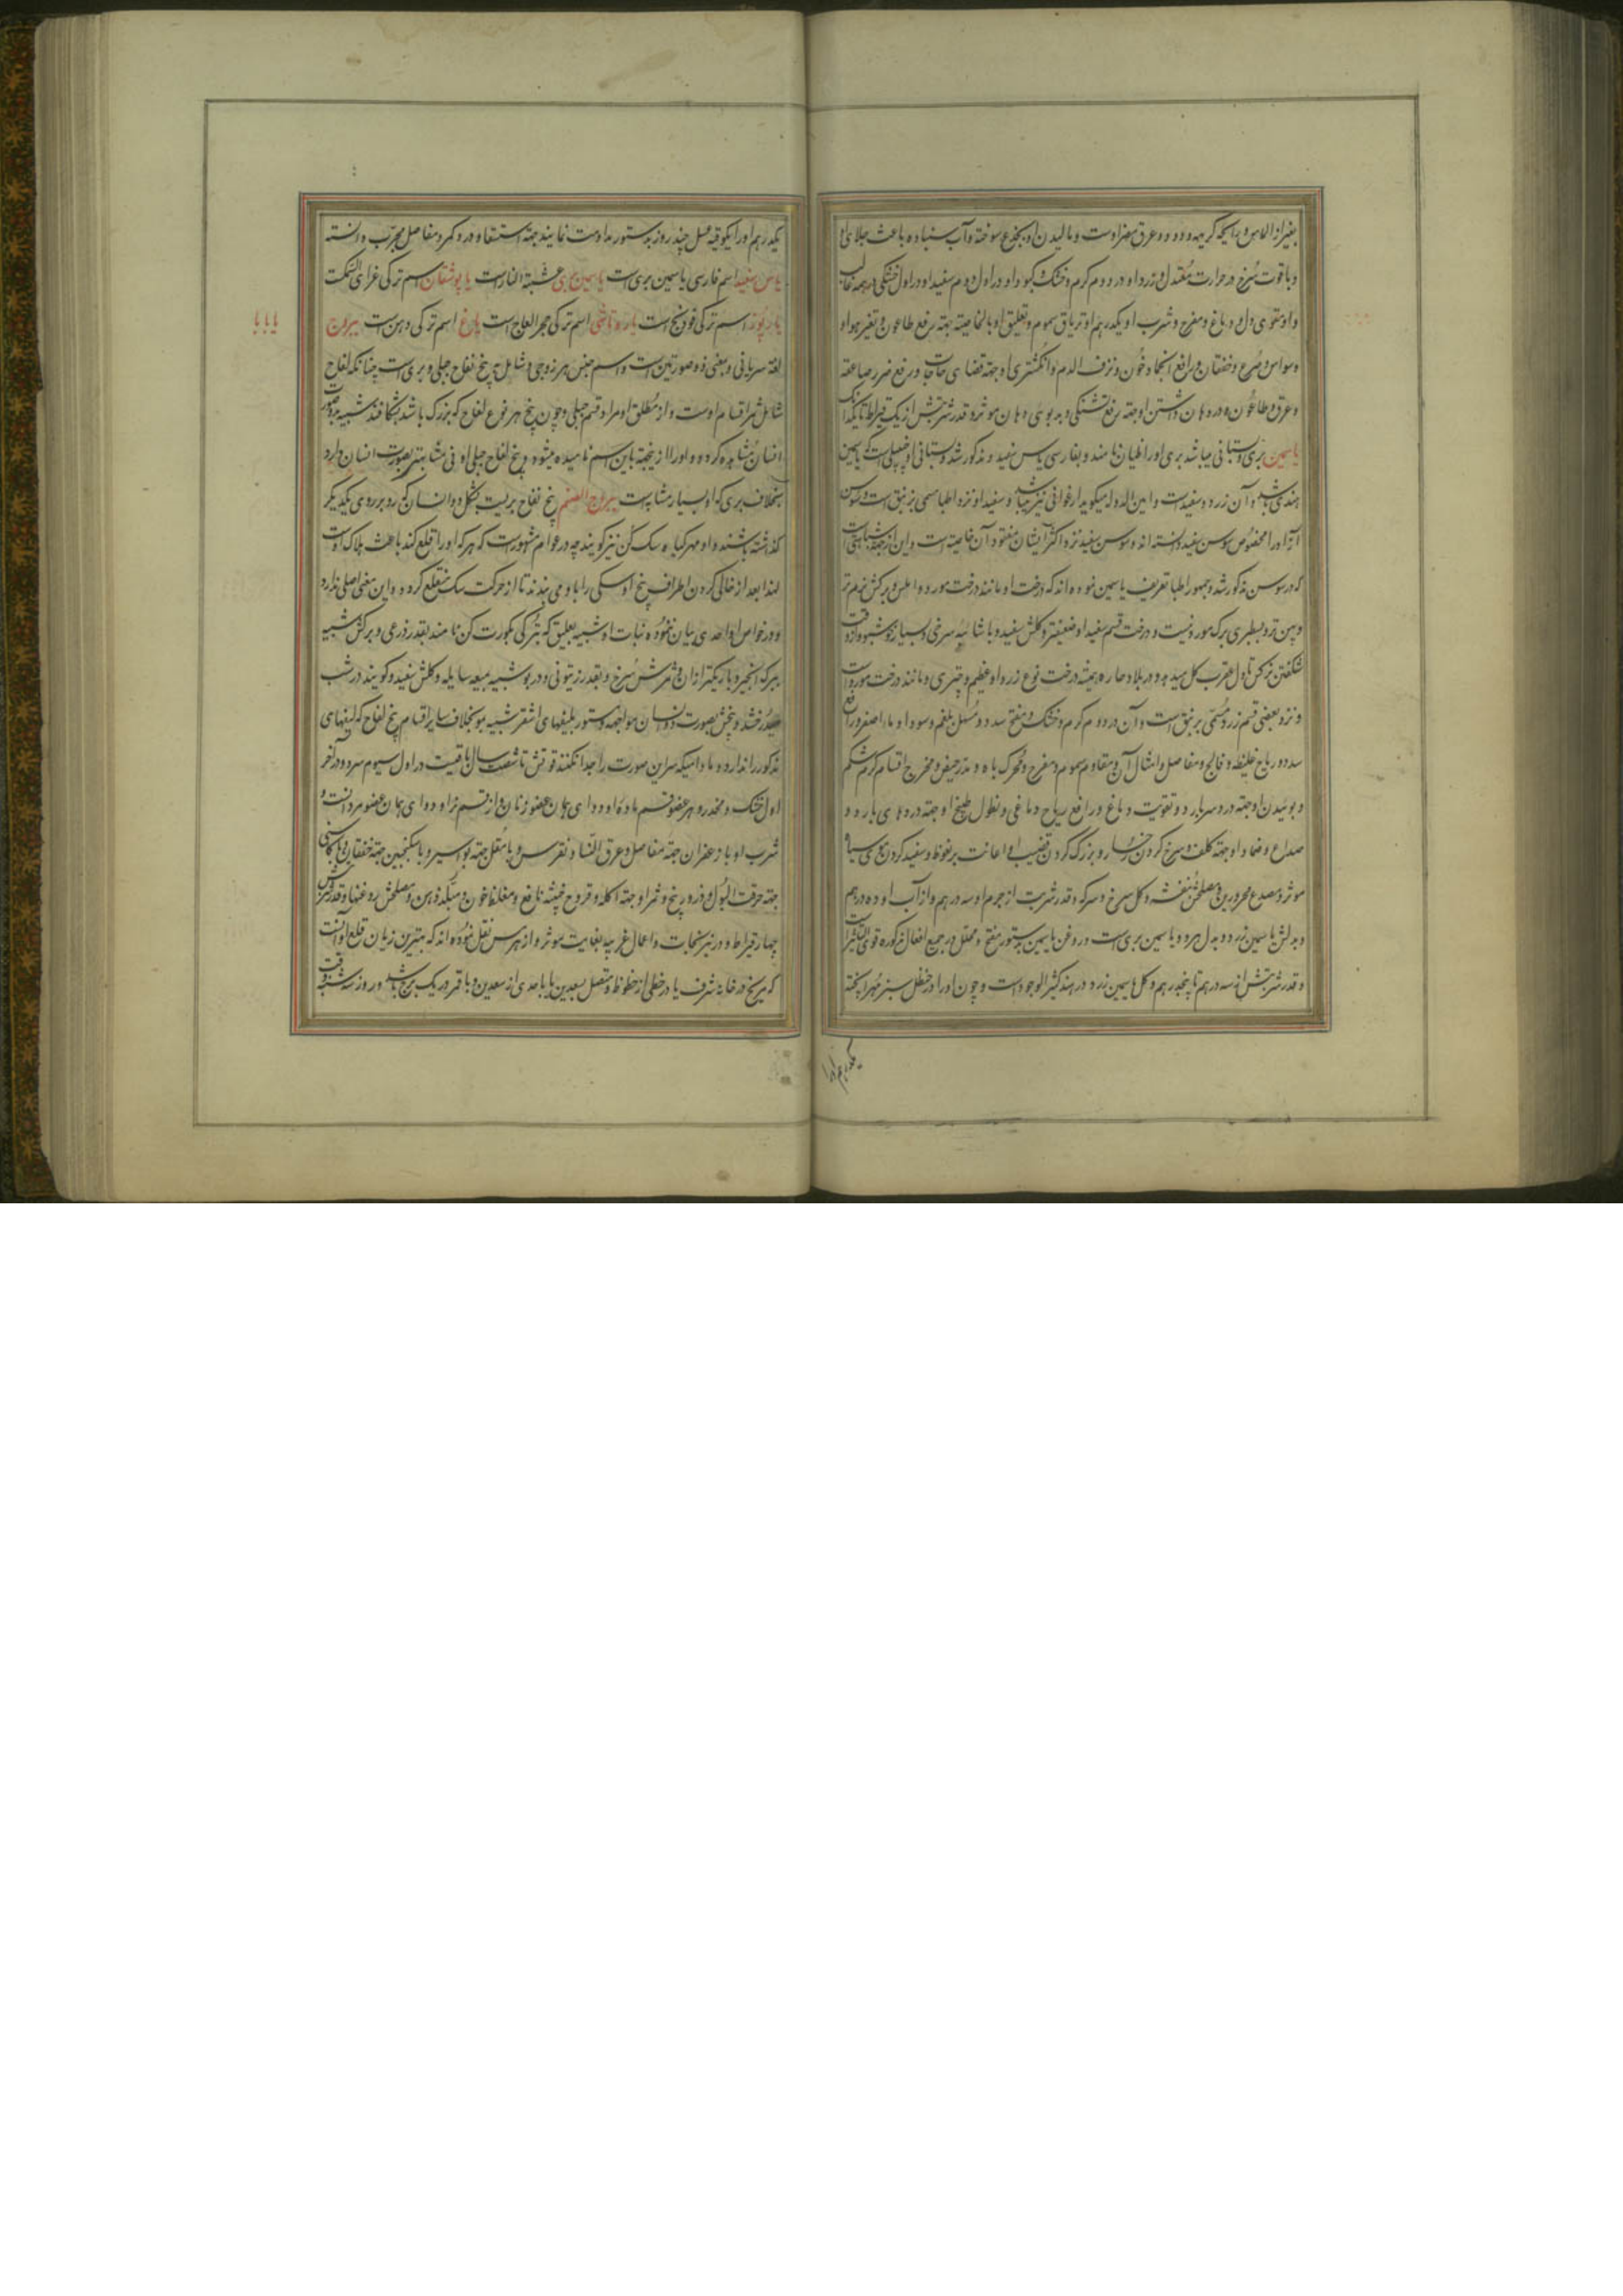 بغیر از الماس و رایحه کریهه و دود و عرق مضر اوست و مالیدن او بجذع سوخته و آب سنباده باعث جلای او
و یاقوت سرخ در حرارت معتدل و زرد او در دوم گرم و خشک و کبود او در اول و دوم سفید او در اول خشکی در همه غالب
و او مقوی دل و دماغ و مفرح و شرب او یکدرهم او تریاق سموم و تعلیق او بالخاصیته جهته رفع طاعون و تغیر هوا و
وسواس و صرع و خفقان و رافع انجماد خون و نزف الدم و انگشتری او جهته قضای حاجات و رفع ضرر صاعقه
و غرق و طاعون و در دهان داشتن او جهته رفع تشنگی و بدبوی دهان موثر و قدر شربتش از یک قیراط تا یکدانک
یاسمین بری و بستانی میباشد بری او را ظیان نامند و بفارسی یاس سفید و مذکور شد و بستانی او جبلی است که یاسمین
هندی باشد و آن زرد و سفید است و امین الدوله میگوید ارغوانی نیز میباشد و سفید او نزد اطبا مسمی بزنبق است و سوسن
آزاد را مخصوص سوسن سفید دانسته اند و سوسن سفید نزد اکثر ایشان مفقود آن خاصیته است و این از جمله
که در سوسن مذکور شد و جمهور اطبا تعریف یاسمین نموده اند که درخت او مانند درخت مورد و املس و برگش نرم تر
و پهن تر و بسطبری برگ مورد نیست و درخت قسم سفید او ضعیفتر و گلش سفید و با شائبه سرخی و بسیار خوشبو و از وقت
شکفتن نرگس تا اول عقرب گل میدهد و در بلاد حاره همیشه درخت نوع زرد او عظیم و چتری و مانند درخت مورد است
و نزد بعضی قسم زرد مسمی بزنبق است و آن در دوم گرم و خشک و مفتح سدد و مسهل بلغم و سودا و ماء اصفر و رافع
سدد و ریاح غلیظه و فالج و مفاصل و امثال آن و مقاوم سموم و مفرح و محرک باه و مدر حیض و مخرج اقسام کرم شکم
و بوئیدن او جهته درد سر بارد و تقویت دماغ و رافع ریاح دماغی و نطول طبیخ او جهته دردهای بارد و
صداع و ضماد او جهته کلف و سرخ کردن رخسار و بزرگ کردن قضیب او و اعانت بر نعوظ و سفید کردن موی سیاه
موثر و مصدع محرورین و مصلحش بنفشه و گل سرخ و سرکه و قدر شربت از جرم او سه درهم و از آب او ده درهم
و بدلش یاسمین زرد و بدل هر دو یاسمین بری است و روغن یاسمین بدستور مفتح و محلل و در جمیع افعال مذکوره قوی التاثیر است
و قدر شربتش از سه درهم تا پنجدرهم و گل یاسمین زرد در هند کثیر الوجود است و چون او را در حنظل سبز مهرا پخته
یکدرهم او را
یکدرهم او را با یکوقیه عسل چند روز بدستور مداومت نمایند جهته استسقا و درد کمر و مفاصل مجرب دانسته
یاس سفید اسم فارسی یاسمین بری است یاسمین بری عشبة النار است یاپوشقان اسم ترکی غراء السمک است
یارپوز اسم ترکی فودنج است یاره تاشی اسم ترکی حجر العاج است یاغ اسم ترکی دهن است یبروج
لغة سریانی و بمعنی ذو صورتین است و اسم جنس هر زوجی و شامل بیخ لفاح جبلی و بری است چنانکه لفاح
شامل ثمر اقسام اوست و از مطلق او مراد قسم جبلی و چون بیخ هر نوع لفاح که بزرگ باشد بشکافند شبیه بدو صورت
انسان مشاهده گردد و او را از این جهته باین اسم نامیده میشود و بیخ لفاح جبلی او فی مشابهتر بصورت انسان دارد
بخلاف بری که او بسیار مشابه است یبروج الصنم بیخ لفاح بریست بشکل دو انسان که رو بر روی یکدیگر
گذاشته باشند و او مهر گیاه و سگ کن نیز گویند چه در عوام مشهور است که هر که او را قلع کند باعث هلاک اوست
لهذا بعد از خالی کردن اطراف بیخ او سگی را با او می بندند تا از حرکت سگ منقلع گردد و این معنی اصلی ندارد
و در خواص او احدی بیان نموده نبات او شبیه بعلیق که بترکی بکورتکن نامند بقدر ذرعی و برگش شبیه
ببرگ انجیر و باریکتر از آن و ثمرش سرخ و بقدر زیتونی و در بو شبیه بمیعه سایله و گلش سفید و گویند در شب
میدرخشد و بیخش بصورت دو انسان مواجهه و مستور بلیفهای اشقر شبیه بمو بخلاف سایر اقسام بیخ لفاح که لیفهای
مذکور را ندارد و مادامیکه سر این صورت را جدا نکنند قوتش تا شصت سال باقیست در اول سیوم سرد و در آخر
اول خشک و مخدر و هر عضو قسم ماده او دوای همان عضو زنان و از قسم نر او دوای همان عضو مرد است و
شرب او با زعفران جهته مفاصل و عرق النسا و نقرس و با مقل جهته بواسیر و با سکنجبین جهته خفقان و با کاسنی
جهته حرقت البول و ذرور بیخ و ثمر او جهته آکله و قروح خبیثه نافع و مغلظ خون و مبلد ذهن و مصلحش روغنها و قدر شربتش
چهار قیراط و در نیرنجات و اعمال غریبه بغایت موثر و از هرمس نقل نموده اند که بهترین زمان قلع او آنست
که مریخ در خانه شرف یا در حظی از حظوظ و متصل بسعدین یا با احدی از سعدین و با قمر در یک برج باشد و روز سه شنبه وقت